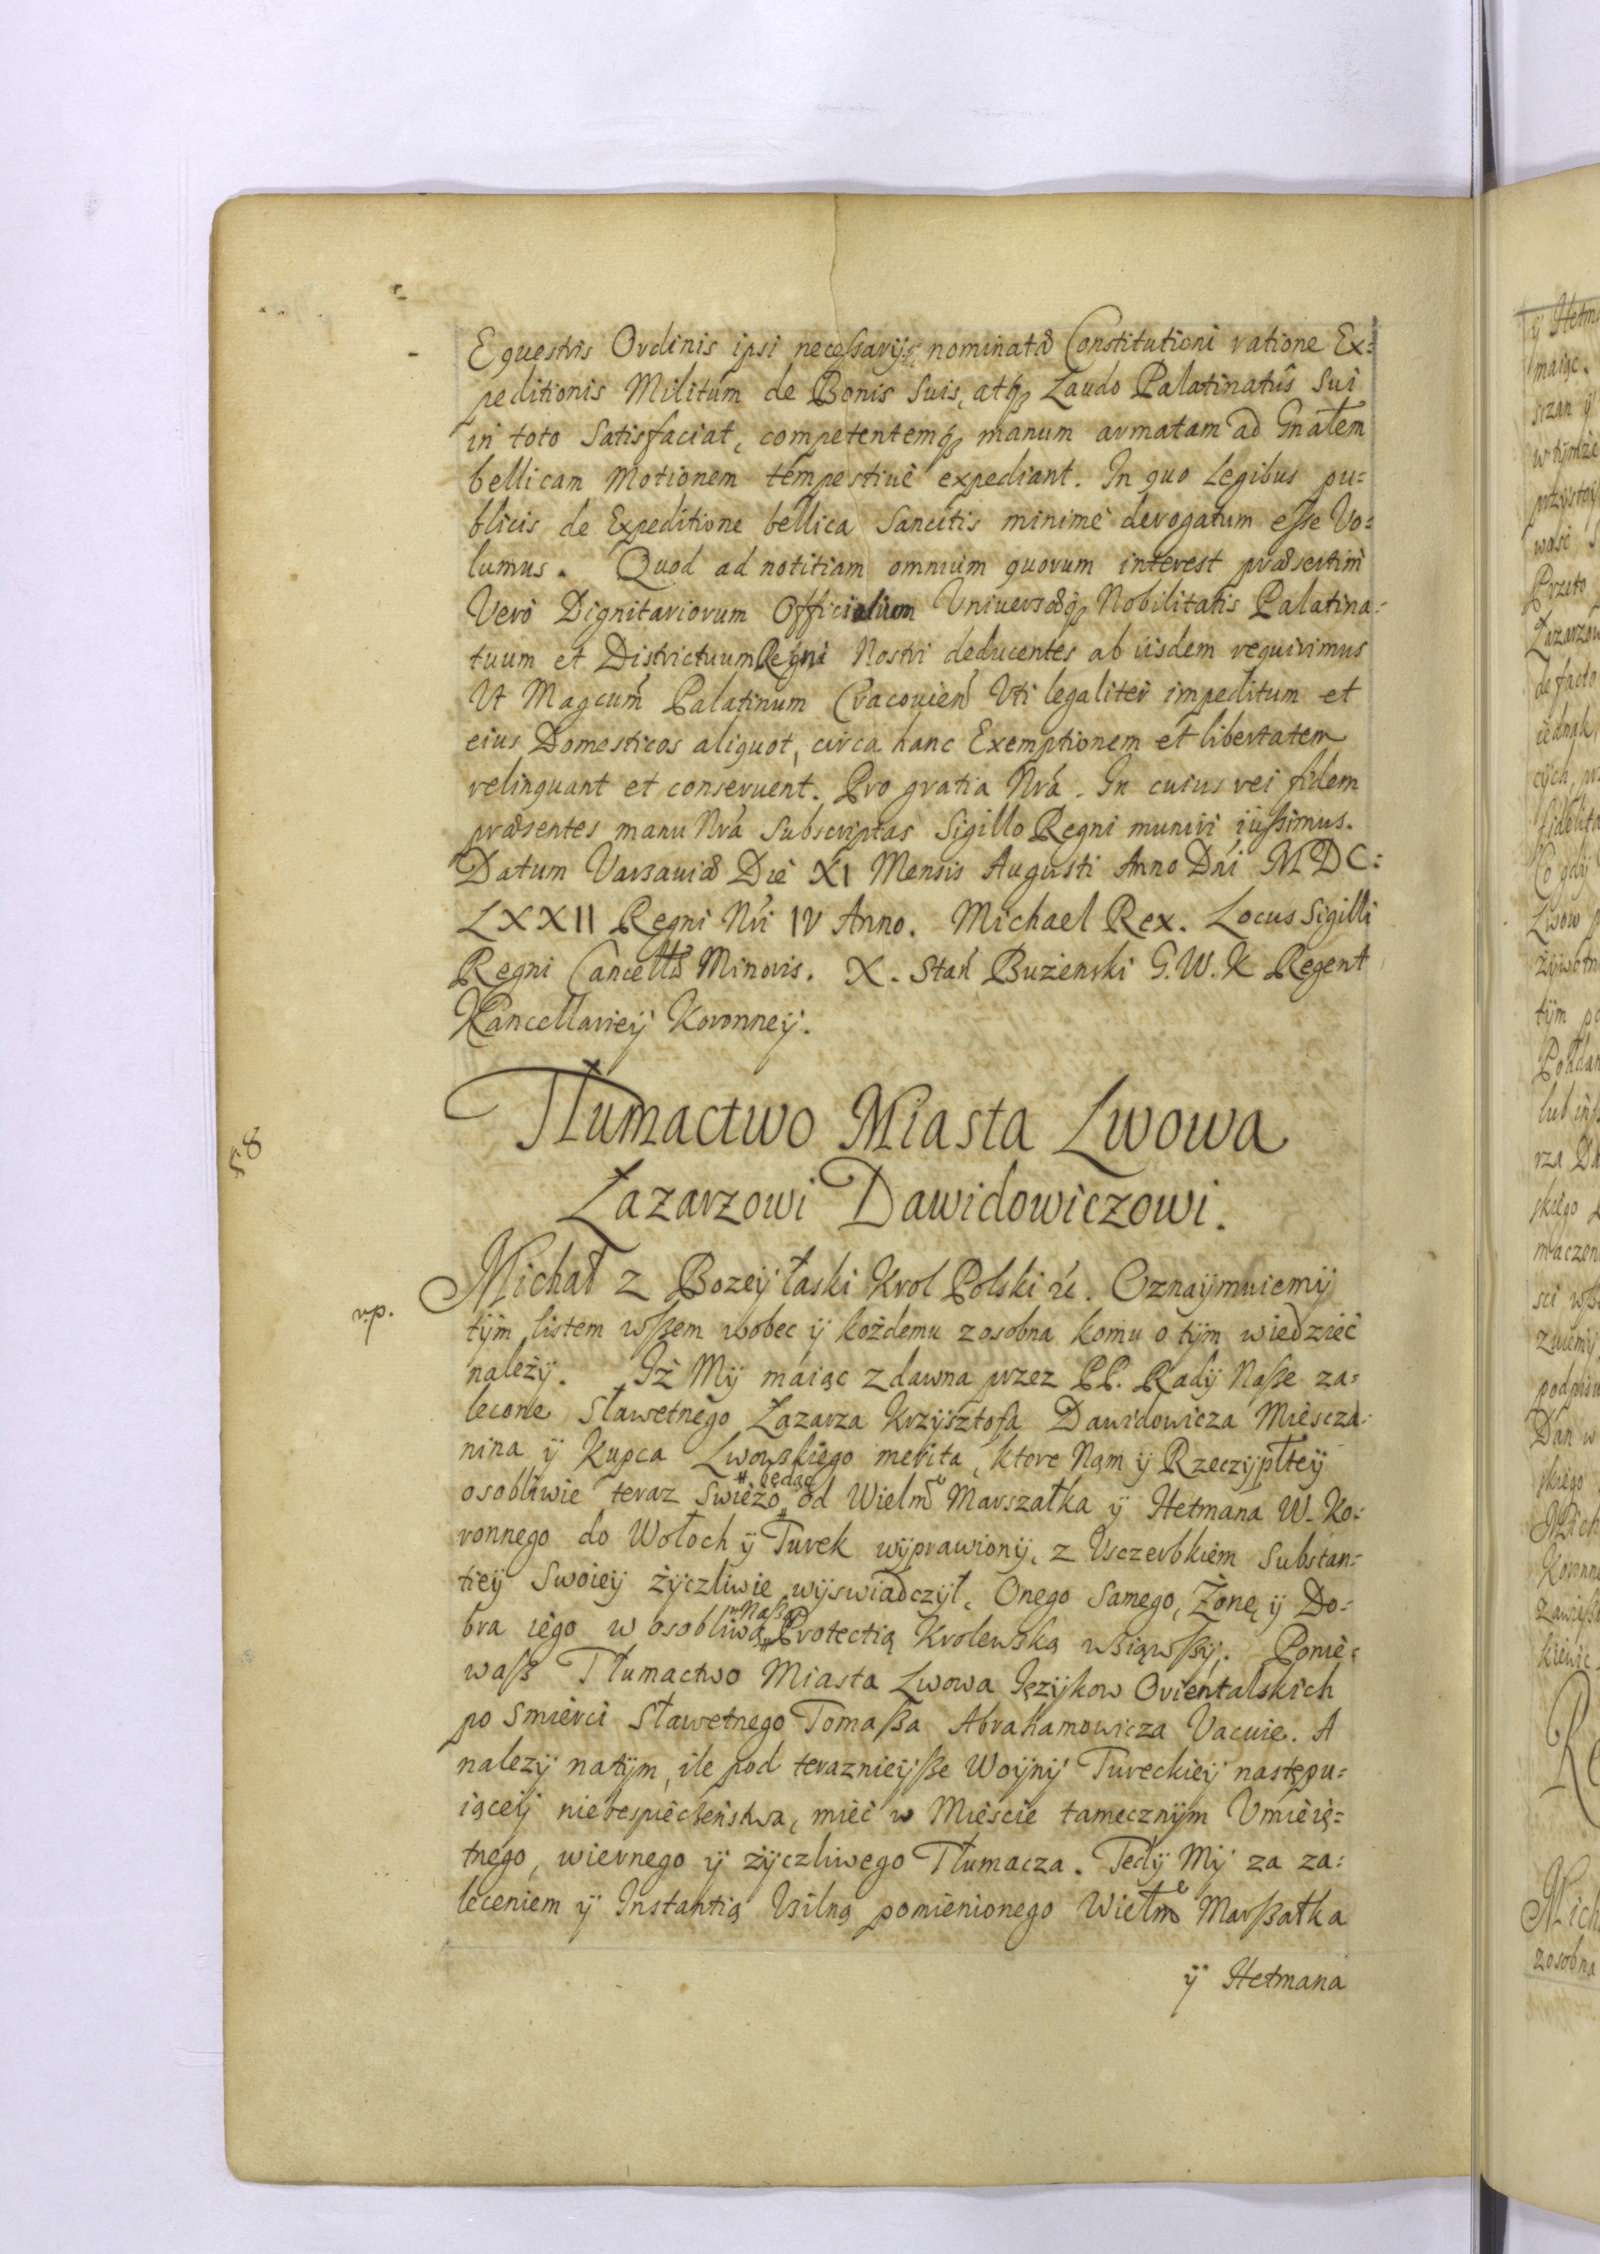 Equestris Ordinis ipsi necessarijs nominatæ Constitutioni ratione Ex=
peditionis Militum de Bonis Suis, atq3 Laudo Palatinatûs Sui
in toto Satisfaciat, competentemq3 manum armatam ad Gnałem
bellicam Motionem tempestivè expediant. In quo Legibus pu=
blicis de Expeditione bellica Sancitis minimè derogatum esse Vo=
lumus. Quod ad notitiam omnium quorum interest præsertim
Verò Dignitariorum Officialium Universæq3 Nobilitatis Palatina=
tuum et Districtuum Regni Nostri deducentes ab iisdem requirimus
Ut Magcum Palatinum Cracovien Uti legaliter impeditum et
eius Domesticos aliquot, circa hanc Exemptionem et libertatem
relinquant et conseruent. Pro gratia Nrá. In cuius rei fidem
præsentes manu Nrá Subscriptas Sigillo Regni muniri iussimus.
Datum Varsauiæ Die XI Mensis Augusti Anno Dni MDC=
LXXII Regni Nri IV Anno. Michael Rex. Locus Sigilli
Regni Cancellæ Minoris. X. Stań Bużenski G.W.K Regent
Kancellarieÿ Koronneÿ.
Tłumactwo Miasta Lwowa
Łazarzowi Dawidowiczowi.
58
rp.
Michał z Bozeÿ łaski Krol Polski &c. Oznaÿmuiemÿ
tÿm listem wßem wobec ÿ kożdemu zosobna komu o tÿm wiedzieć
należÿ. Iż Mÿ maiąc zdawna przez PP. Radÿ Naße za=
lecone Sławetnego Łazarza Krzÿsztofa Dawidowicza Miescza=
nina ÿ Kupca Lwowskiego merita, ktore Nam ÿ Rzeczÿpłteÿ
# będąc
osobliwie teraz Swieżo # od Wielmo Marszałka ÿ Hetmana W. Ko=
ronnego do Wołoch ÿ Turek wÿprawionÿ, z Usczerbkiem Substan=
tieÿ Swoieÿ życzliwie wÿswiadczÿł, Onego Samego, Żonę ÿ Do=
# Naßą
bra iego w osobliwą # Protectią Krolewską wziąwßÿ. Ponie=
waß Tłumactwo Miasta Lwowa Ięzÿkow Orientalskich
po Smierci Sławetnego Tomaßa Abrahamowicza Vacuie. A
nalezÿ natÿm, ile pod teraznieÿße Woÿnÿ Tureckieÿ następu=
iąceÿ niebespieczeństwa, mieć w Mieście tamecznÿm Umieię=
tnego, wiernego ÿ życzliwego Tłumacza. Tedÿ Mÿ za za=
leceniem ÿ Instantią Usilną pomienionego Wielmo Marßałka
ÿ Hetmana